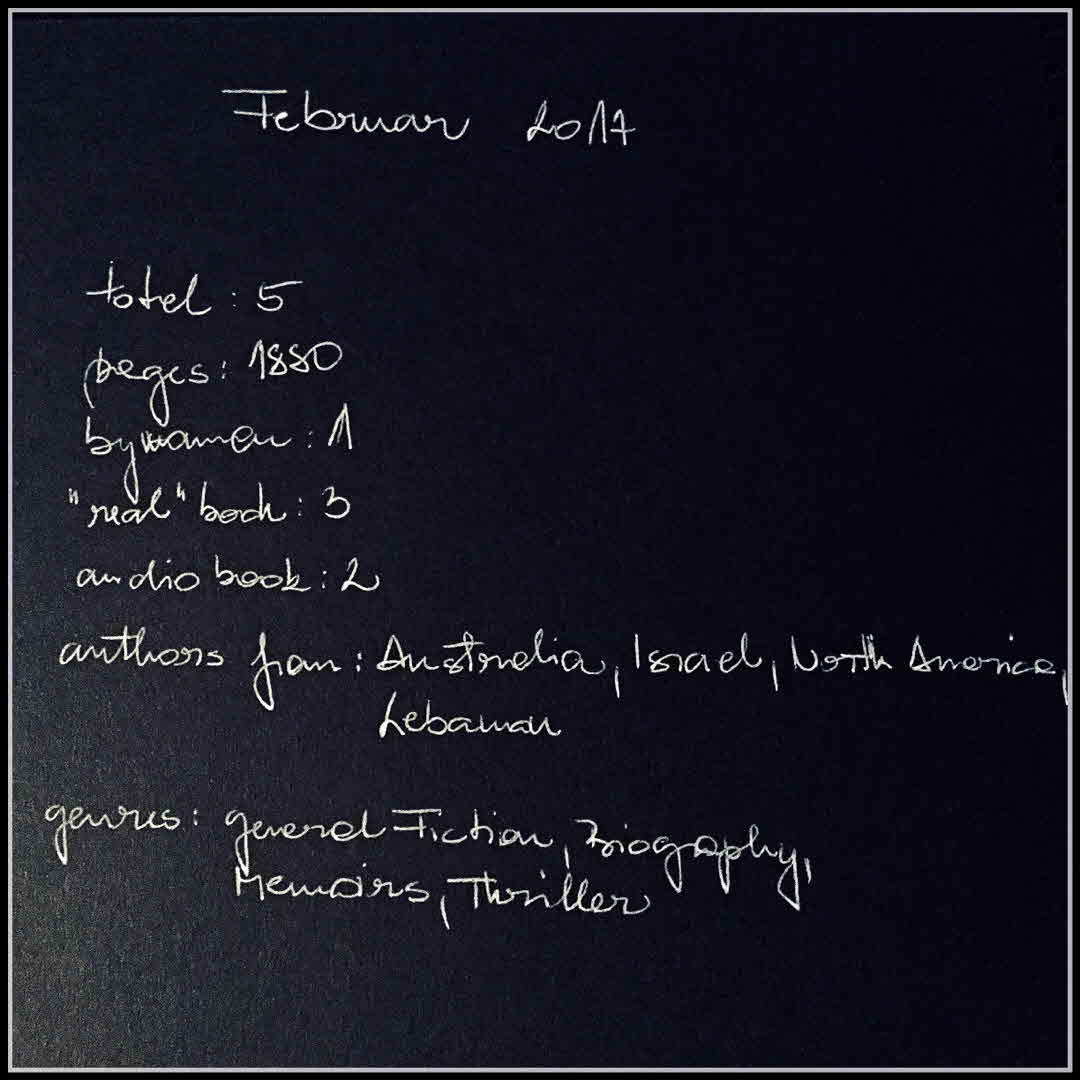 Februar 2017
total : 5
pages : 1880
by women : 1
"real" book : 3
audio book : 2
authors from : Australia, Israel, North America,
Lebanon
genres : general Fiction, Biography,
Memoirs, Thriller